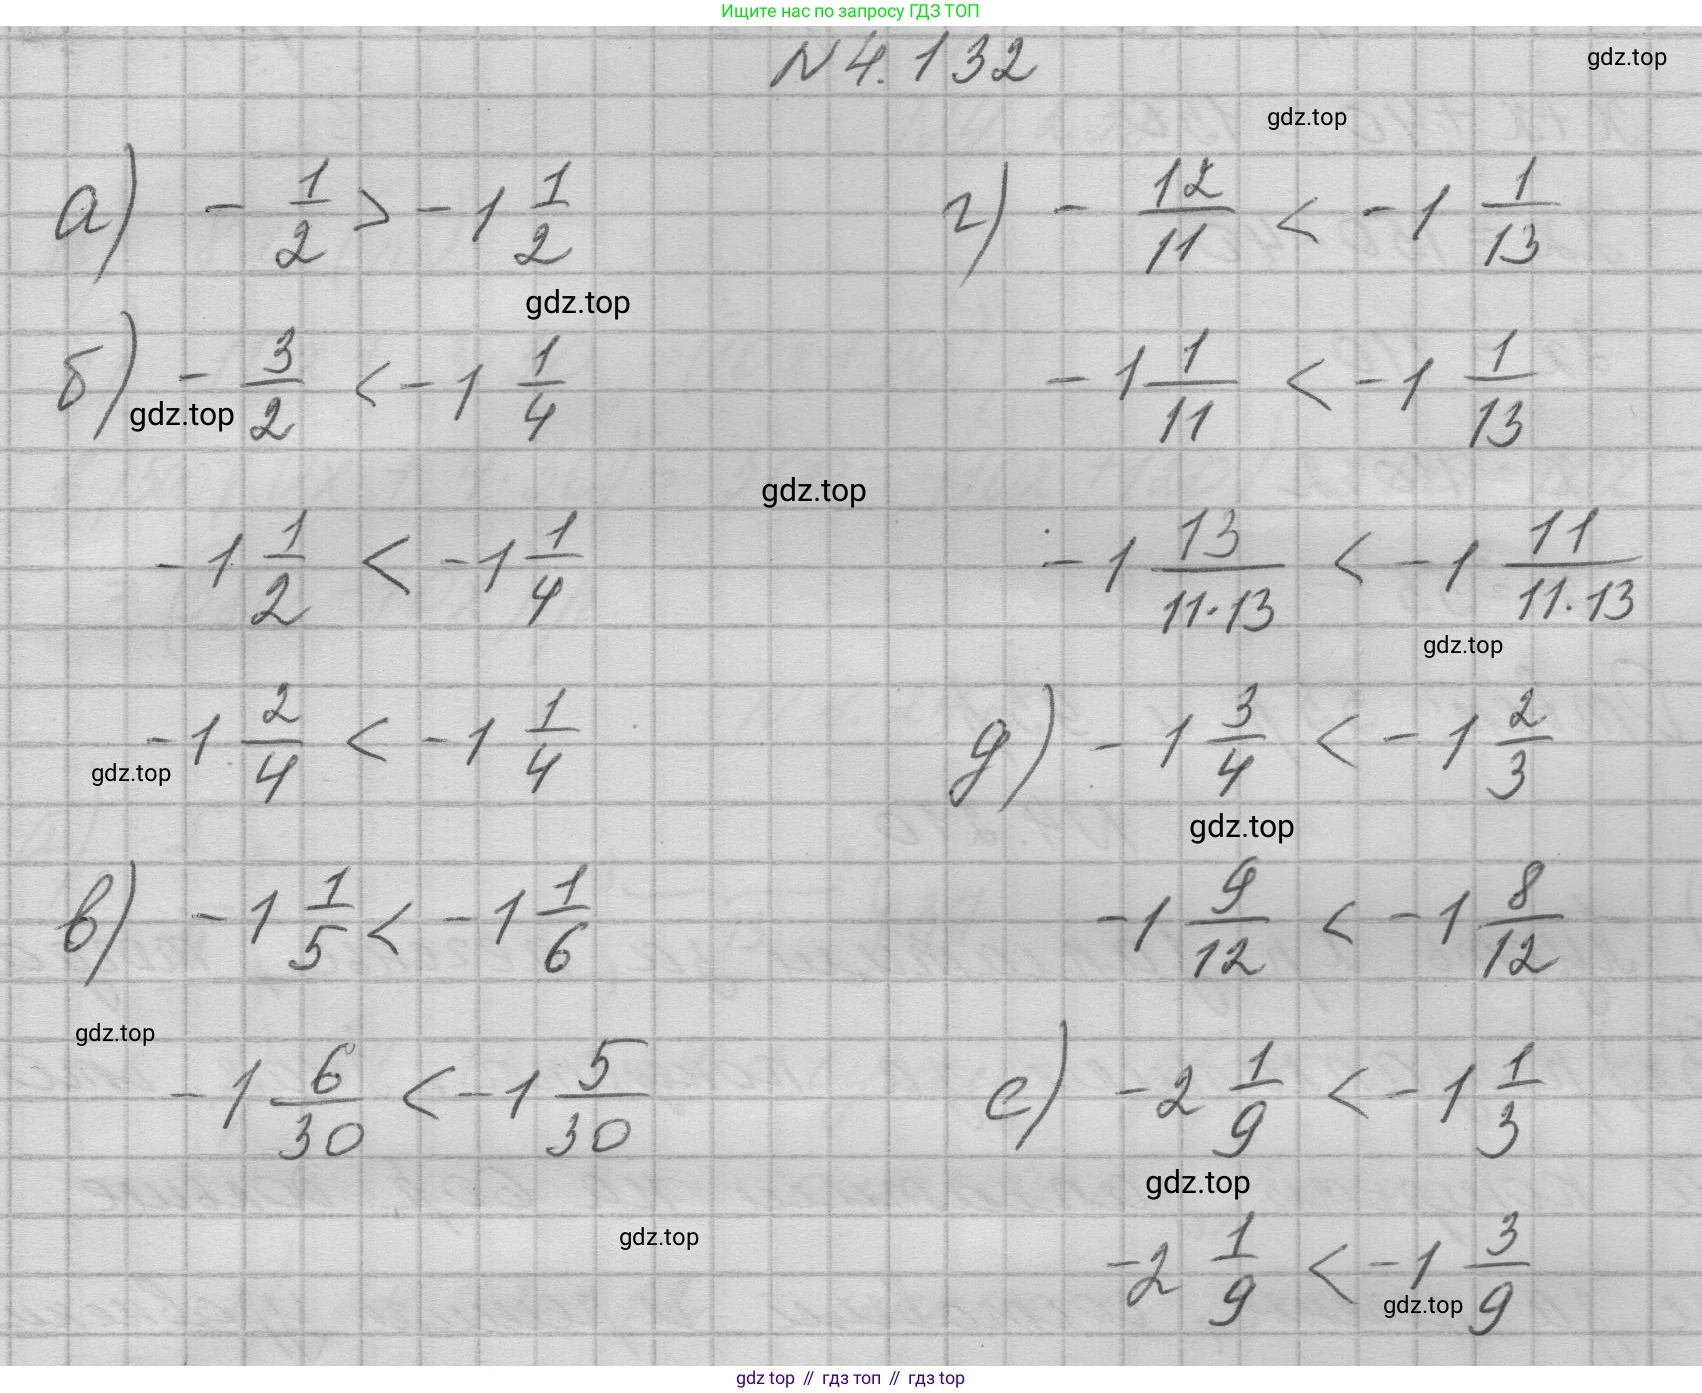 Ищите нас по запросу ГДЗ ТОП
N 4.132
gdz.top
gdz.top
а) - 1/2 > - 1 1/2
gdz.top
б) - 3/2 < - 1 1/4
gdz.top
- 1 1/2 < - 1 1/4
- 1 2/4 < - 1 1/4
gdz.top
в) - 1 1/5 < - 1 1/6
gdz.top
- 1 6/30 < - 1 5/30
gdz.top
gdz.top
г) - 12/11 < - 1 1/13
- 1 1/11 < - 1 1/13
- 1 13/11·13 < - 1 11/11·13
gdz.top
д) - 1 3/4 < - 1 2/3
gdz.top
- 1 9/12 < - 1 8/12
е) - 2 1/9 < - 1 1/3
gdz.top
- 2 1/9 < - 1 3/9
gdz.top
gdz top // гдз топ // гдз top